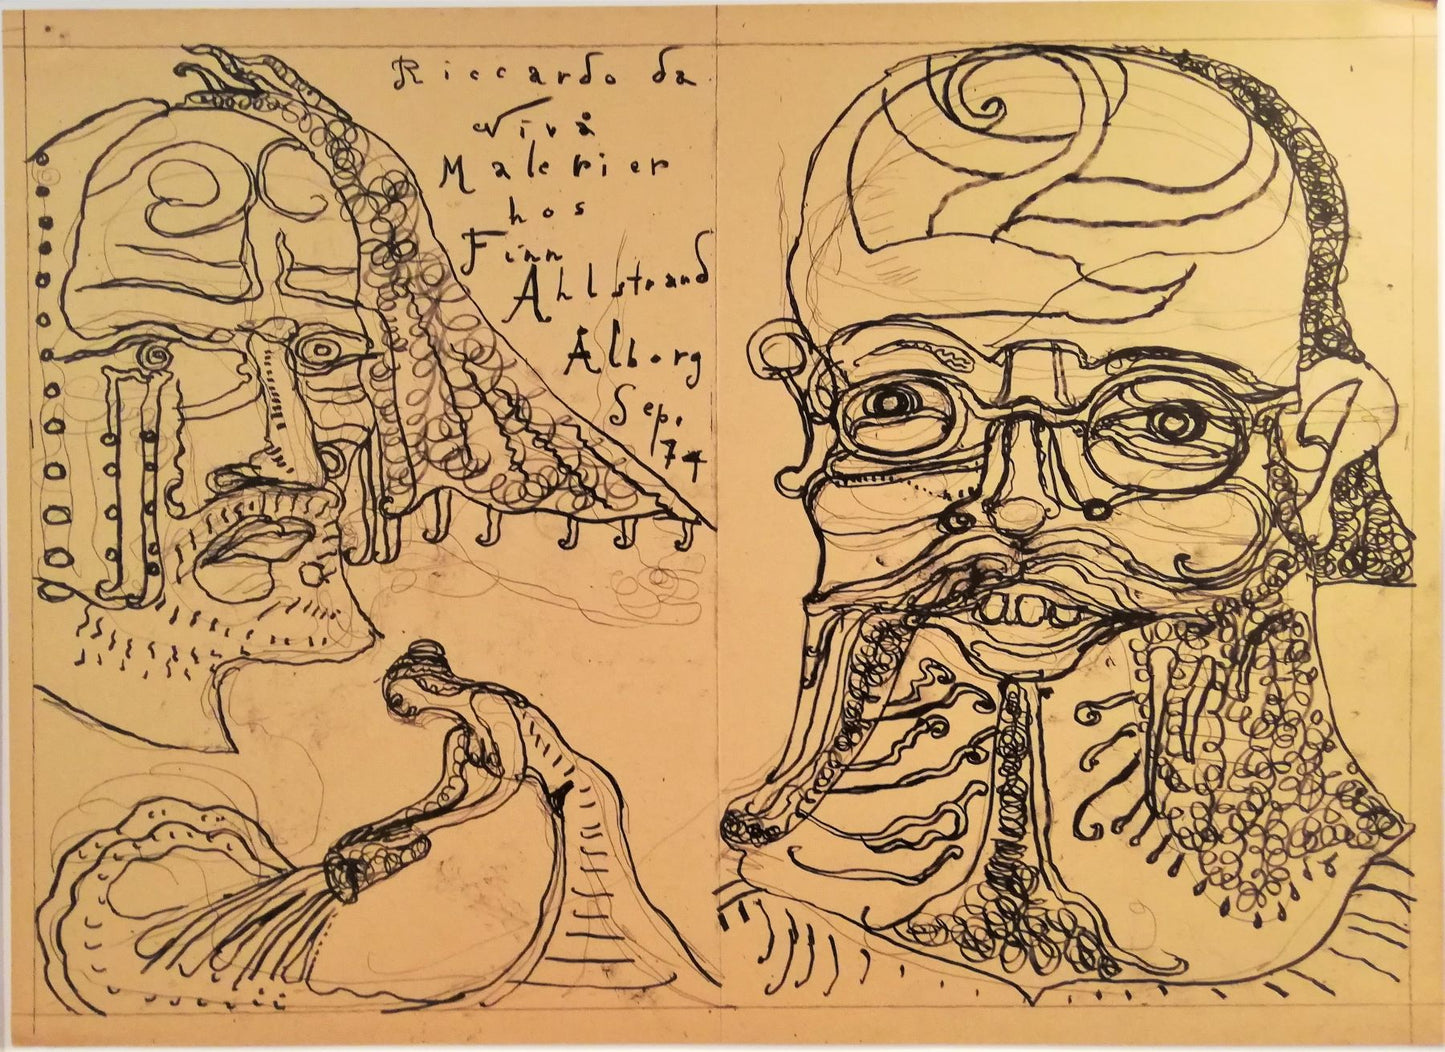 Riccardo da
Vivå
Malerier
hos
Finn
Ahlstrand
Ålborg
Sep.
74